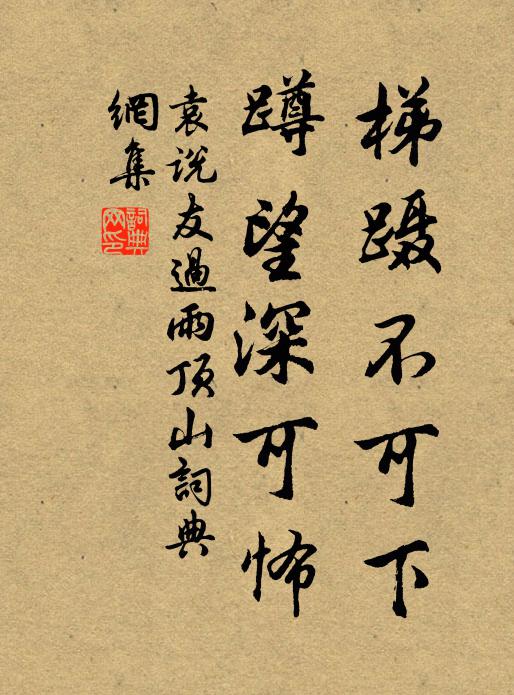 梯蹑不可下
蹲望深可怖
袁说友過兩頂山詞典
網集
詞典網印